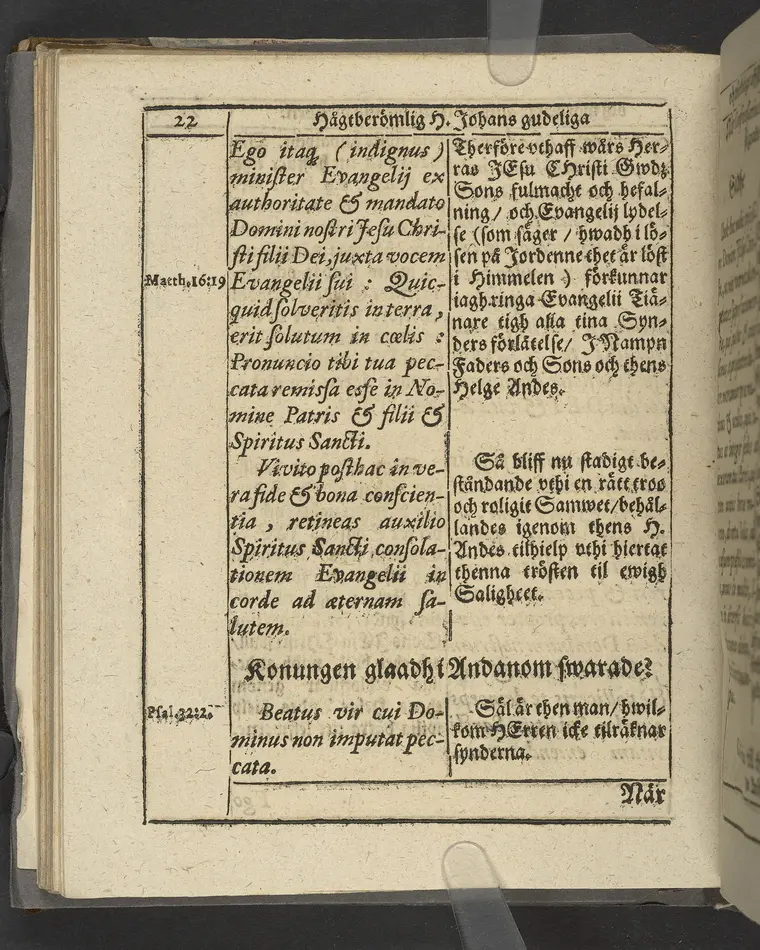 22
Högtberömlig H. Johans gudeliga
Ego itaq; (indignus)
minister Evangelij ex
authoritate & mandato
Domini nostri Jesu Chri-
sti filii Dei, juxta vocem
Matth. 16:19
Evangelii sui : Quic-
quid solveritis in terra,
erit solutum in cœlis :
Pronuncio tibi tua pec-
cata remissa esse in No-
mine Patris & filii &
Spiritus Sancti.
Vivito posthac in ve-
ra fide & bona conscien-
tia, retineas auxilio
Spiritus Sancti consola-
tionem Evangelii in
corde ad æternam sa-
lutem.
Therföre vthaff wårs Her-
ras JEsu CHristi Gwdz
Sons fulmacht och befal-
ning/ och Evangelij lydel-
se (som säger / hwadh i lö-
sen på Jordenne thet är löst
i Himmelen) förkunnar
iagh ringa Evangelii Tiä-
nare tigh alla tina Syn-
ders förlåtelse/ J Nampn
Faders och Sons och thens
Helge Andes.
Så bliff nu stadigt be-
ståndande vthi en rätt troo
och roligit Samwet/behål-
landes igenom thens H.
Andes tilhielp vthi hiertat
thenna trösten til ewigh
Saligheet.
Konungen gladh i Andanom swarade:
Psal. 32:2.
Beatus vir cui Do-
minus non imputat pec-
cata.
Säl är then man/hwil-
kom HErren icke tilräknar
synderna.
När